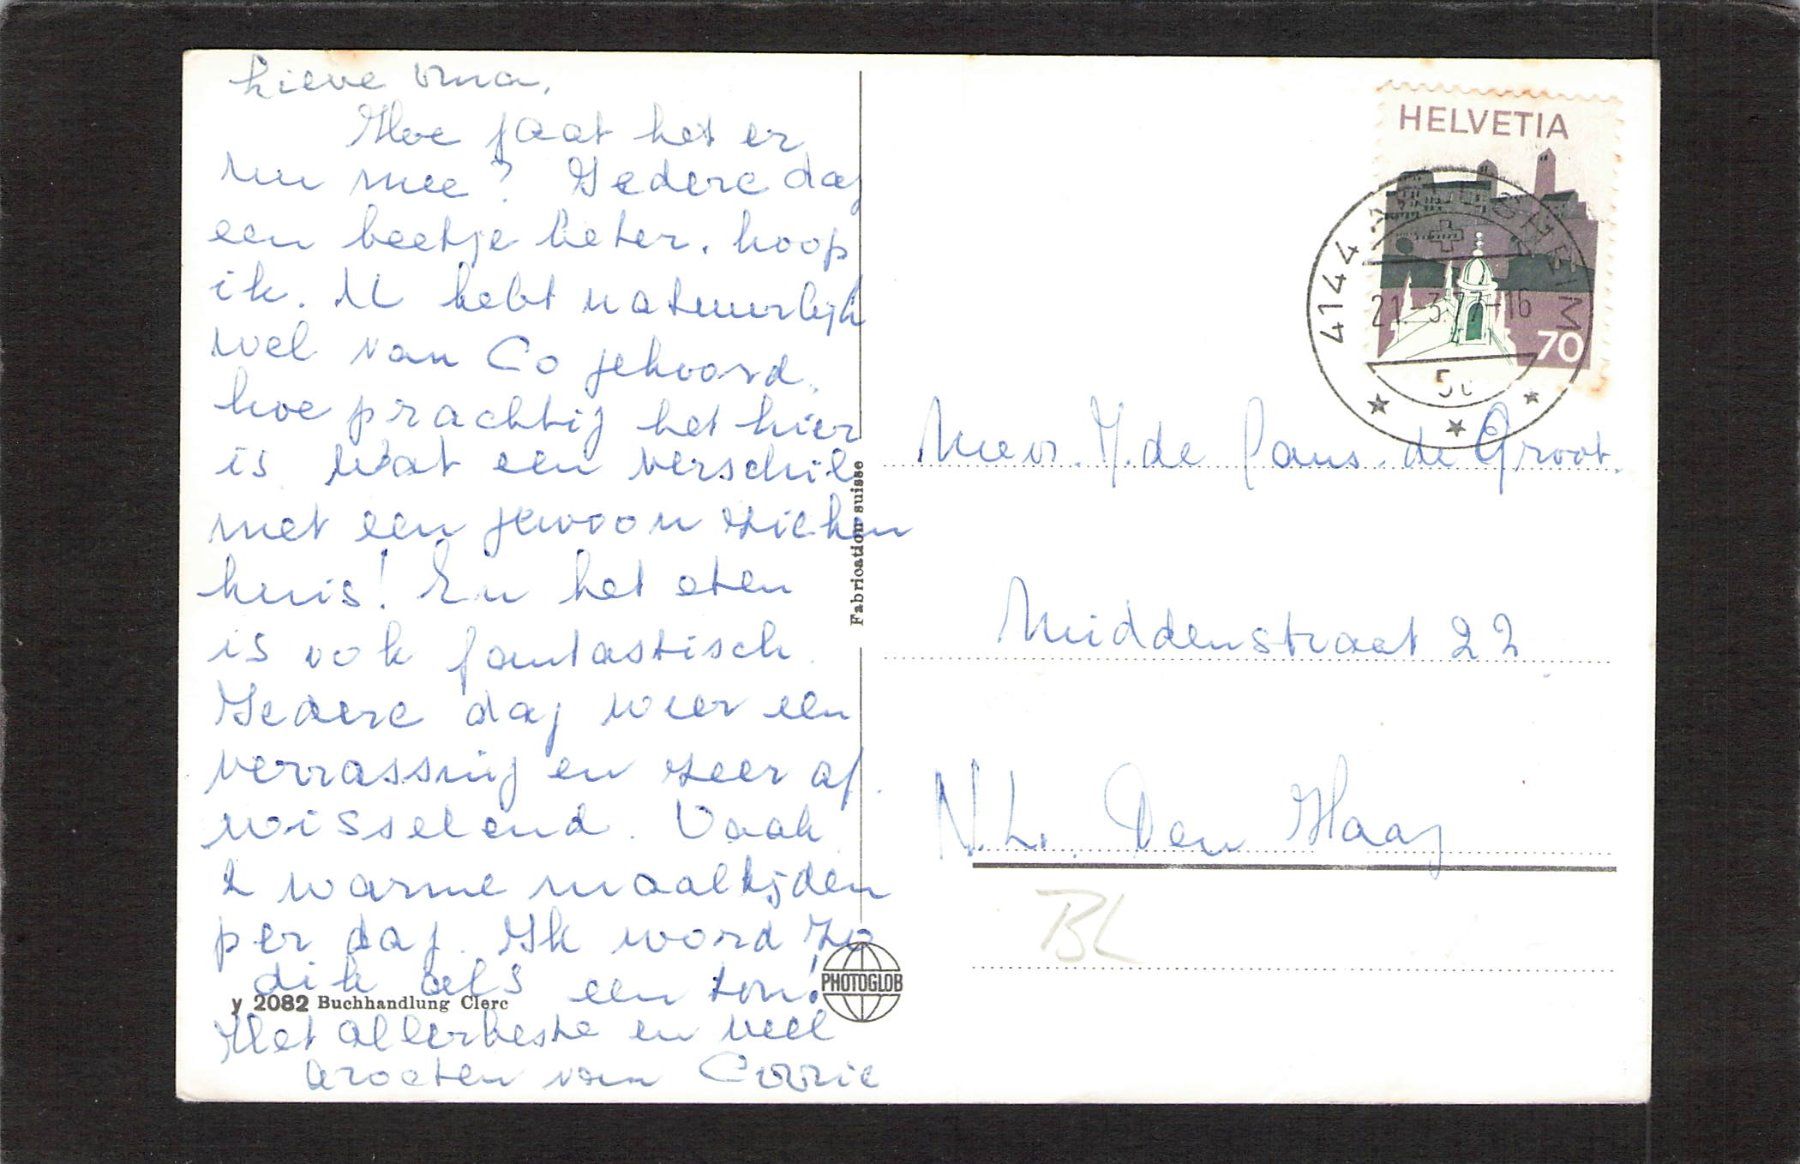 Lieve Oma,
Hoe gaat het er
nu mee? Iedere dag
een beetje beter, hoop
ik. U hebt natuurlijk
wel van Co gehoord,
hoe prachtig het hier
is. Wat een verschil
met een gewoon zieken
huis! En het eten
is ook fantastisch.
Iedere dag weer een
verrassing en zeer af-
wisselend. Vaak
2 warme maaltijden
per dag. Ik word zo
dik als een ton!
Het allerbeste en veel
groeten van Corrie
y 2082 Buchhandlung Clerc
Fabrication suisse
PHOTOGLOB
HELVETIA
70
4144 ARLESHEIM
21.-3.77-16
Mevr. de Gans. de Groot.
Middenstraat 22
N.L. Den Haag
BL